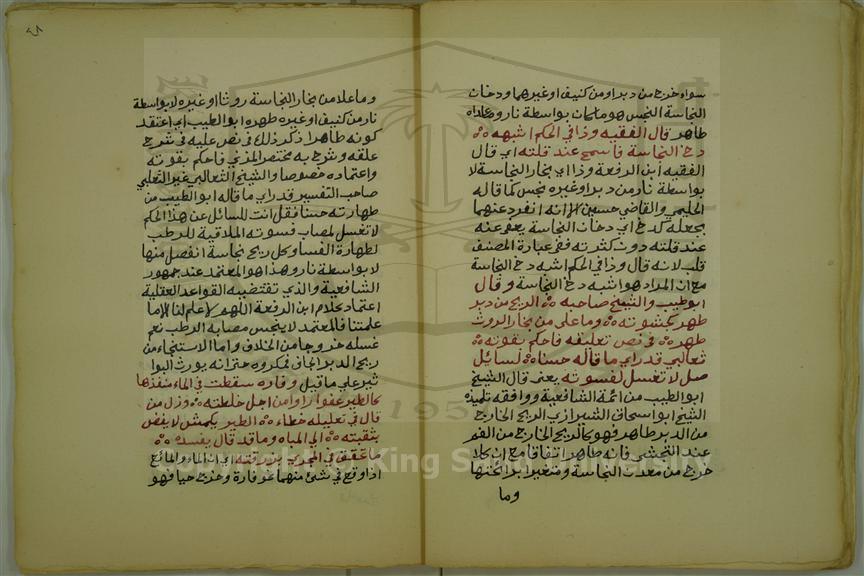 سواء خرج من دبر او من كنيف او غيرهما ودخان
النجاسة النجس هو ما كان بواسطة نار وما عداه
طاهر قال الفقيه وذا في الحكم اشبه
دخ النجاسة فاسمح عند قلته اي قال
الفقيه ابن الرفعة وذا اي بخار النجاسة لا
بواسطة نار من دبر او غيره نجس كما قاله
الحليمي والقاضي حسين الا انه انفرد عنهما
بجعله كدخ اي دخان النجاسة يعفى عنه
عند قلته دون كثرته ففي عبارة المصنف
قلب لانه قال وذا في الحكم اشبه دخ النجاسة
مع ان المراد هو اشبه دخ النجاسة وقال
ابو طيب والشيخ صاحبه الريح من دبر
طهر كجشوته وما على من بخار الروث
طهره في نص تعليقه فاحكم بقوته
ثعالبي قد راي ما قاله حسنا لسائل
صل لا تغسل لفسوته يعني قال الشيخ
ابو الطيب من ائمة الشافعية ووافقه تلميذه
الشيخ ابو اسحاق الشيرازي الريح الخارج
من الدبر طاهر فهو كالريح الخارج من الفم
عند التجشى فانه طاهر اتفاقا مع ان كلا
خرج من معدن النجاسة ومتغير برائحتها
وما
وما علا من بخار النجاسة روثا او غيره لا بواسطة
نار من كنيف او غيره طهره ابو الطيب اي اعتقد
كونه طاهرا ذكر ذلك في نص عليه في شرح
علقه وشرح به مختصر المزني فاحكم بقوته
واعتماده خصوصا والشيخ الثعالبي غير الثعلبي
صاحب التفسير قد راي ما قاله ابو الطيب من
طهارته حسنا فقل انت للسائل عن هذا الحكم
لا تغسل لمصاب فسوته الملاقية للرطب
لطهارة الفسا وكل ريح نجاسة انفصل منها
لا بواسطة نار وهذا هو المعتمد عند جمهور
الشافعية والذي تقتضيه القواعد العقلية
اعتماد كلام ابن الرفعة اللهم لا علم لنا الا ما
علمتنا فالمعتمد لا ينجس مصابه الرطب نعم
غسله خروجا من الخلاف واما الاستنجاء من
ريح الدبر الجاف فمكروه حتى انه يورث البوا
ثير على ما قيل وفاره سقطت في الماء منفذها
كالطير عفوا راوا من اجل خلطته وزل من
قال في تعليله خطاء الطير يكمش لا يفض
بثقبته الي المياه وما قد قال يفسده
ما تحقق في المجري بزرقته اي ان الماء والمائع
اذا وقع في شئ منهما نحو فارة وخرج حيا فهو